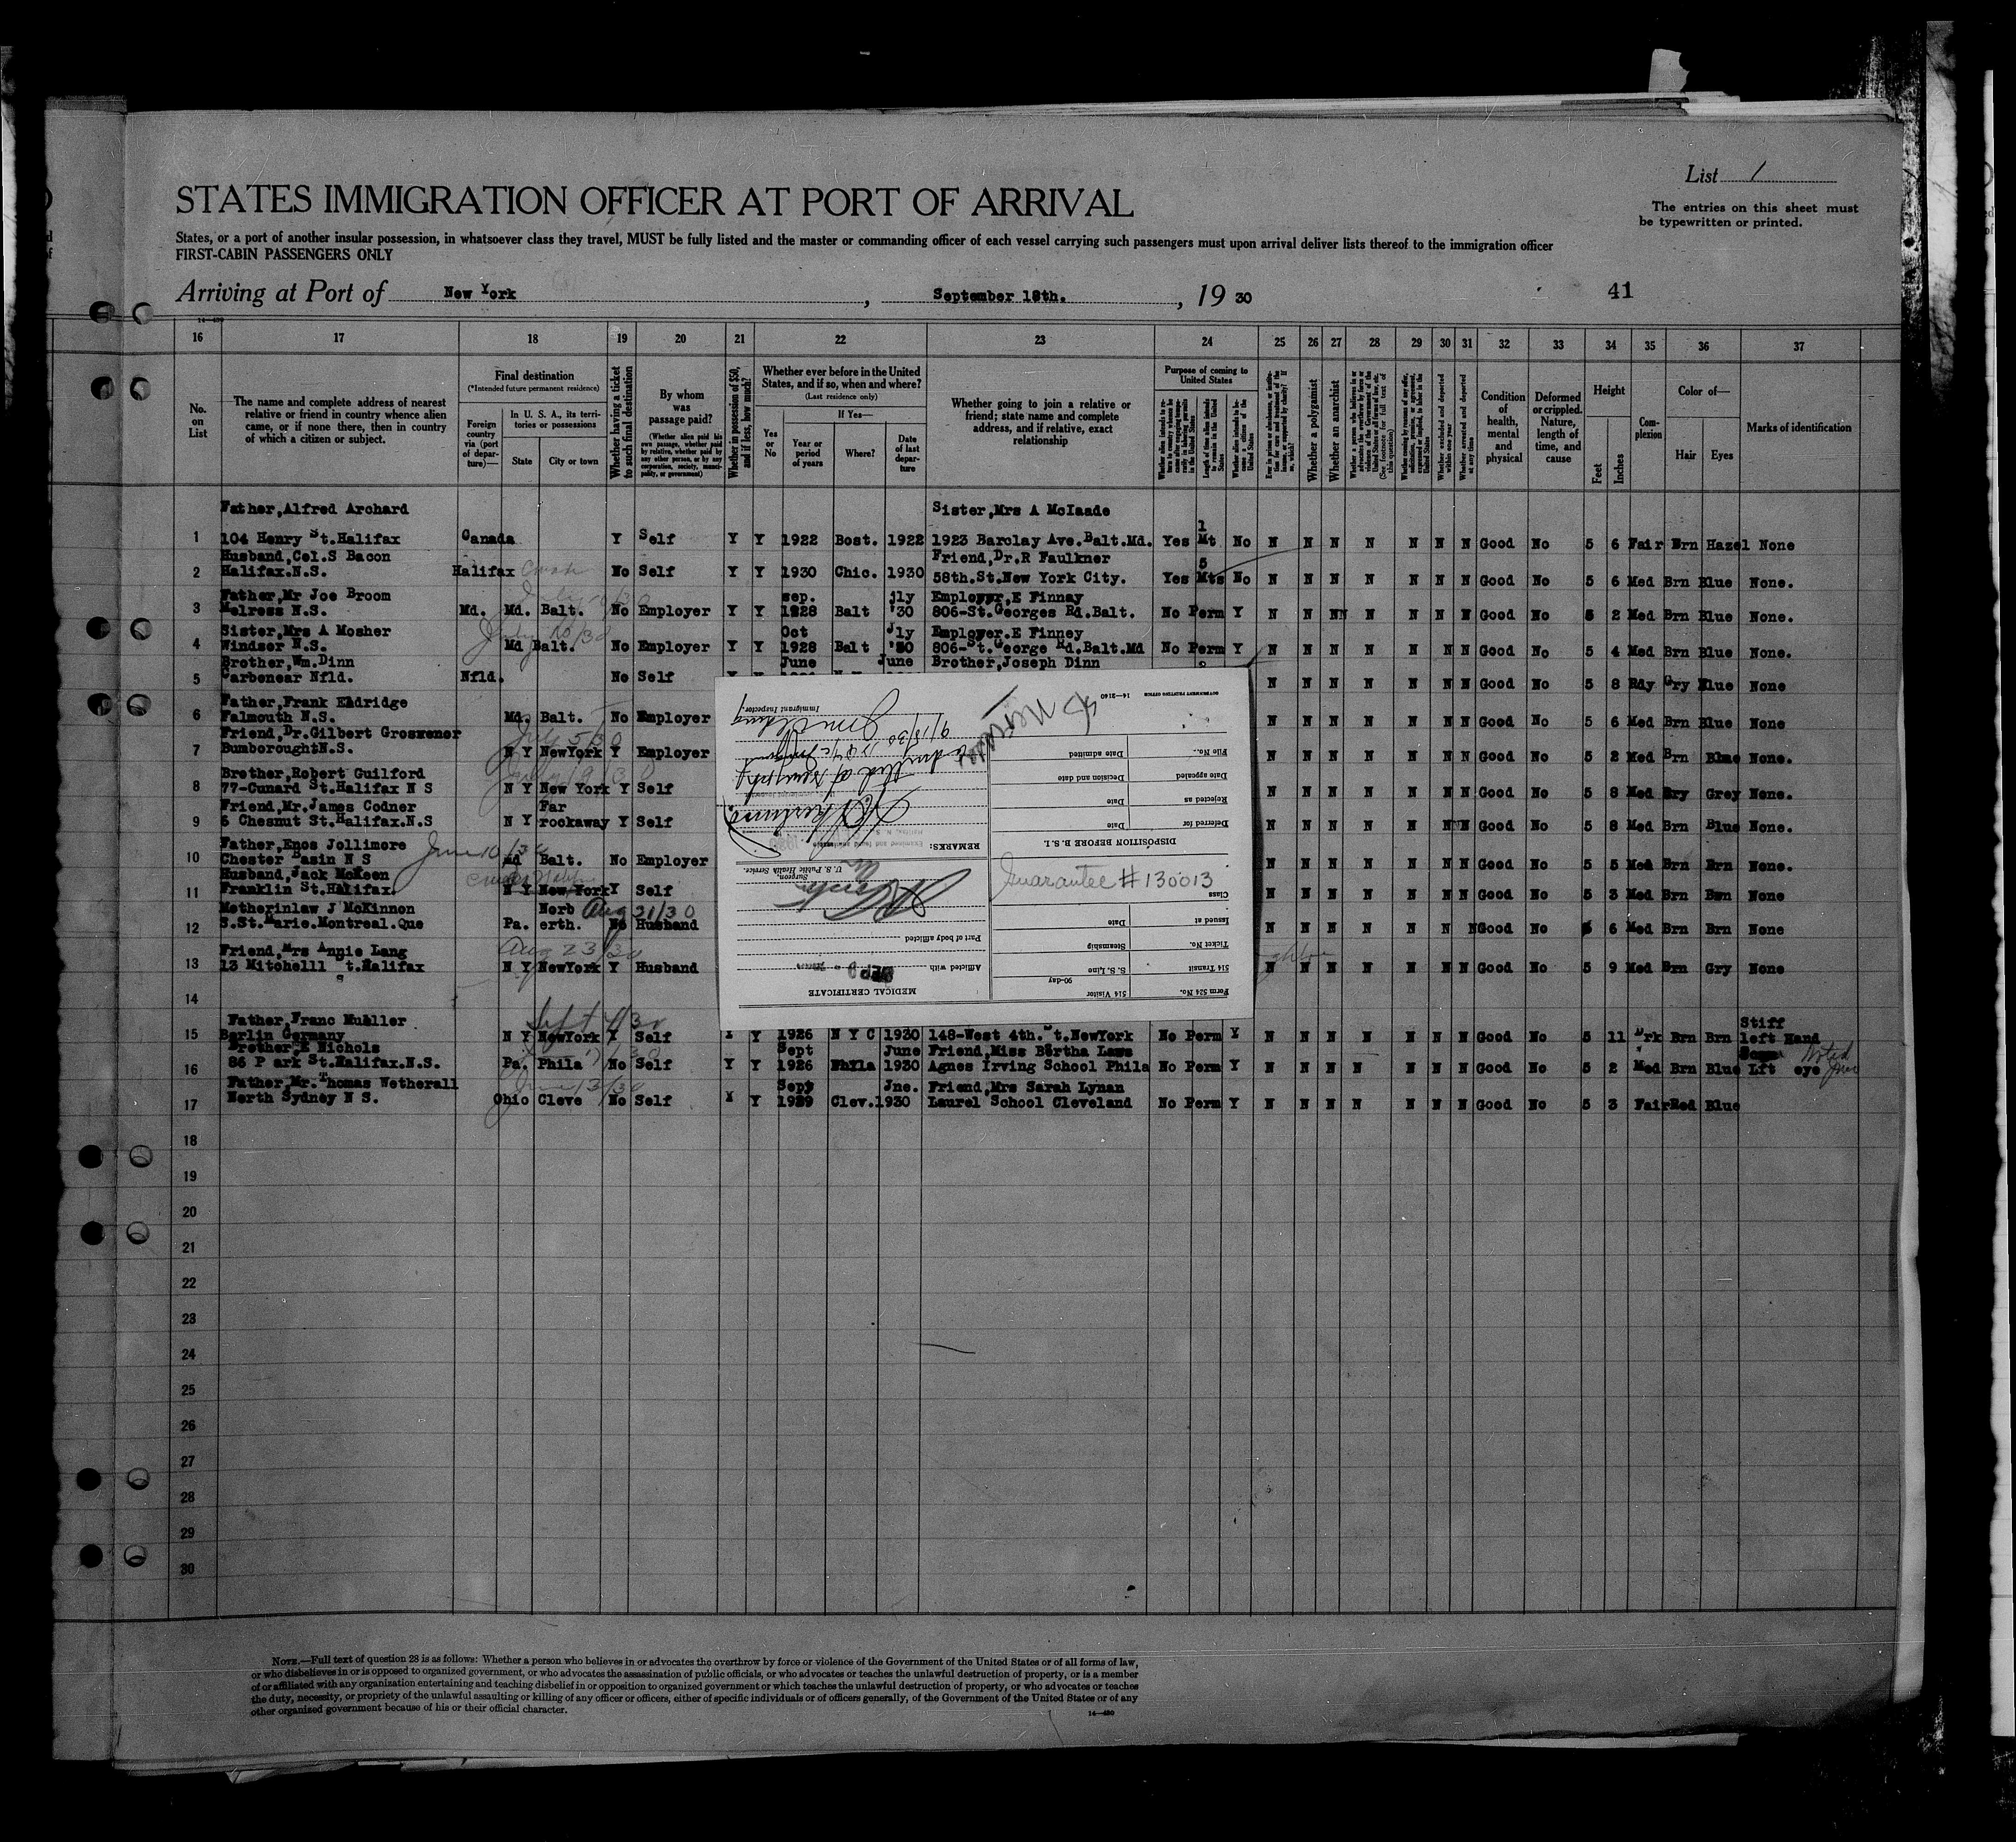 List 1
STATES IMMIGRATION OFFICER AT PORT OF ARRIVAL
The entries on this sheet must
be typewritten or printed.
States, or a port of another insular possession, in whatsoever class they travel, MUST be fully listed and the master or commanding officer of each vessel carrying such passengers must upon arrival deliver lists thereof to the immigration officer
FIRST-CABIN PASSENGERS ONLY
Arriving at Port of New York, September 18th., 19 30
41
16 17 18 19 20 21 22 23 24 25 26 27 28 29 30 31 32 33 34 35 36 37
No. on List
The name and complete address of nearest relative or friend in country whence alien came, or if none there, then in country of which a citizen or subject.
Final destination
(*Intended future permanent residence)
Foreign country via (port of departure)—
In U. S. A., its territories or possessions
State
City or town
Whether having a ticket to such final destination
By whom was passage paid?
(Whether alien paid his own passage, whether paid by relative, whether paid by any other person, or by any corporation, society, municipality, or government)
Whether in possession of $50, and if less, how much?
Whether ever before in the United States, and if so, when and where?
(Last residence only)
Yes or No
If Yes—
Year or period of years
Where?
Date of last departure
Whether going to join a relative or friend; state name and complete address, and if relative, exact relationship
Purpose of coming to United States
Whether a polygamist
Whether an anarchist
Condition of health, mental and physical
Deformed or crippled. Nature, length of time, and cause
Height
Feet
Inches
Complexion
Color of—
Hair
Eyes
Marks of identification
Father,Alfred Archard Sister,Mrs A McIaade
1 104 Henry St.Halifax Canada Y Self Y Y 1922 Bost. 1922 1923 Barclay Ave.Balt.Md. Yes 1 Mt No N N N N N N N Good No 5 6 Fair Brn Hazel None
Husband,Cel.S Bacon Friend,Dr.R Faulkner
2 Halifax.N.S. Halifax No Self Y Y 1930 Chic. 1930 58th.St.New York City. Yes 5 Mts No N N N N N N N Good No 5 6 Med Brn Blue None.
Father,Mr Joe Broom sep. jly Employer,E Finnay
3 Melress N.S. Md. Md. Balt. No Employer Y Y 1928 Balt '30 806-St.Georges Rd.Balt. No Perm Y N N NN N N N N Good No 5 2 Med Brn Blue None.
July 10/30
Sister,Mrs A Mosher Oct Jly Employer.E Finney
4 Windsor N.S. Md Balt. No Employer Y Y 1928 Balt '30 806-St.George Rd.Balt.Md No Perm Y N N N N N N N Good No 5 4 Med Brn Blue None.
Brother,Wm.Dinn June June Brother,Joseph Dinn
5 Carbonear Nfld. Nfld. No Self N N N N N N N Good No 5 8 Rdy Gry Blue None
Father,Frank Eldridge
6 Falmouth N.S. Md. Balt. No Employer N N N N N N N Good No 5 6 Med Brn Blue None
July 5/30
Friend,Dr.Gilbert Grosvener
7 BumboroughtN.S. N Y NewYork Y Employer N N N N N N N Good No 5 2 Med Brn Blue None.
Brether,Robert Guilford
8 77-Cunard St.Halifax N S N Y New York Y Self N N N N N N N Good No 5 8 Med Gry Grey None.
Friend,Mr.James Codner Far
9 6 Chesnut St.Halifax.N.S N Y rockaway Y Self N N N N N N N Good No 5 8 Med Brn Blue None.
Father,Enos Jollimore
10 Chester Basin N S Md Balt. No Employer N N N N N N N Good No 5 5 Med Brn Brn None.
Husband,Jack McKeen
11 Franklin St.Halifax. N Y New York Y Self N N N N N N N Good No 5 3 Med Brn None
Aug 21/30
Metherinlaw J McKinnon Norb
12 S.St.Marie.Montreal.Que Pa. erth. No Husband N N N N N N N Good No 6 Med Brn Brn None
Aug 23/30
Friend,Mrs Annie Lang
13 13 Mitchell St.Halifax N Y NewYork Y Husband N N N N N N N Good No 5 9 Med Brn Gry None
14
Sept 4/30
Father,Franc Mueller Stiff
15 Berlin Germany N Y NewYork Y Self Y Y 1926 N Y C 1930 148-West 4th.St.NewYork No Perm Y N N N N N N N Good No 5 11 Drk Brn Brn left Hand
Brether,E Nichols Sept June Friend,Miss Bertha Laws
16 86 P ark St.Halifax.N.S. Pa. Phila No Self Y Y 1926 Phila 1930 Agnes Irving School Phila No Perm Y N N N N N N N Good No 5 2 Med Brn Blue Lft eye
Noted
Father,Mr.Thomas Wetherall Sept Jne. Friend,Mrs Sarah Lynan
17 North Sydney N S. Ohio Cleve No Self Y Y 1929 Clev. 1930 Laurel School Cleveland No Perm Y N N N N N N N Good No 5 3 Fair Red Blue
18
19
20
21
22
23
24
25
26
27
28
29
30
Form 524 No.
514 Visitor
90-day
514 Transit
S. S. Line
Ticket No.
Steamship
Issued at
Date
Class
Guarantee # 130013
DISPOSITION BEFORE B. S. I.
Deferred for
Date
Rejected as
Date
Date appealed
Decision and date
File No.
Date admitted
GOVERNMENT PRINTING OFFICE 14—2140
MEDICAL CERTIFICATE
Afflicted with
Part of body afflicted
Surgeon,
U. S. Public Health Service.
REMARKS:
9/18/30
Immigrant Inspector.
NOTE.—Full text of question 28 is as follows: Whether a person who believes in or advocates the overthrow by force or violence of the Government of the United States or of all forms of law,
or who disbelieves in or is opposed to organized government, or who advocates the assassination of public officials, or who advocates or teaches the unlawful destruction of property, or is a member
of or affiliated with any organization entertaining and teaching disbelief in or opposition to organized government or which teaches the unlawful destruction of property, or who advocates or teaches
the duty, necessity, or propriety of the unlawful assaulting or killing of any officer or officers, either of specific individuals or of officers generally, of the Government of the United States or of any
other organized government because of his or their official character.
14—430